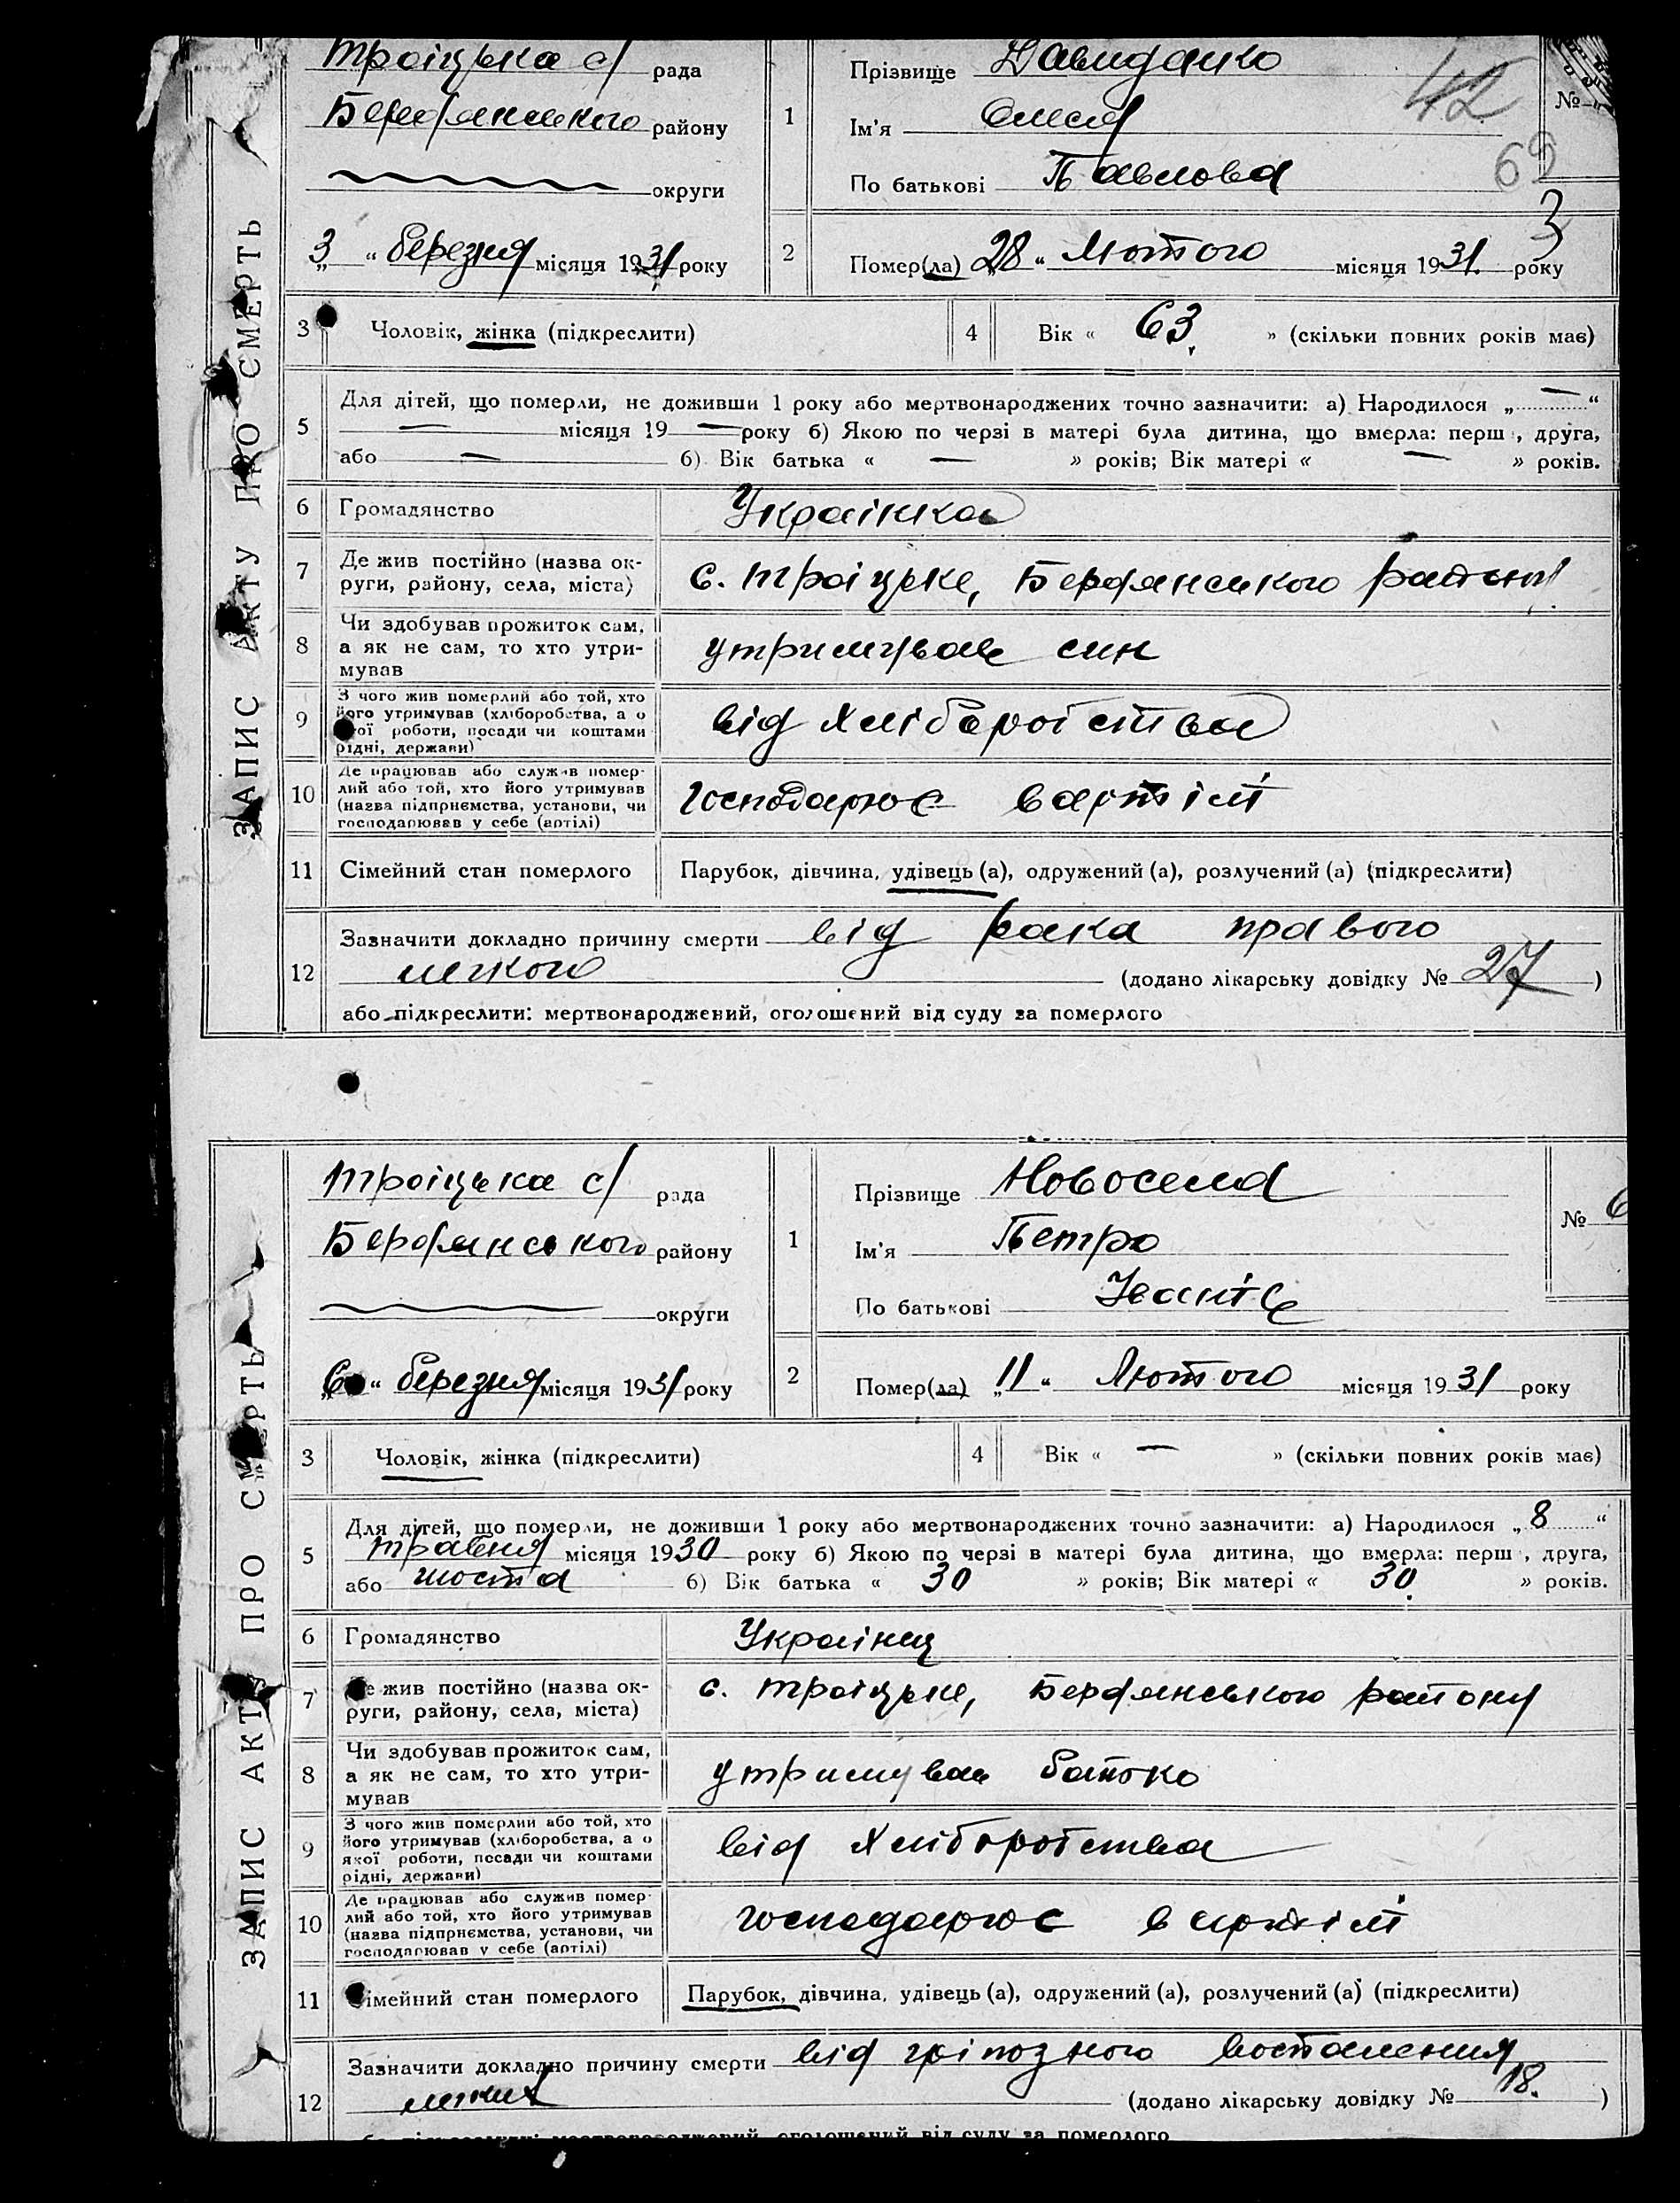 ЗАПИС АКТУ ПРО СМЕРТЬ
Троіцька с/ рада
Бердянського району
округи
„3“ березня місяця 1931 року
1
Прізвище Давиденко
Ім'я Олеся
По батькові Павлова
42
69
№
3
2
Помер(ла) „28“ Лютого місяця 1931. року
3 Чоловік, жінка (підкреслити)
4 Вік « 63. » (скільки повних років має)
5 Для дітей, що померли, не доживши 1 року або мертвонароджених точно зазначити: а) Народилося „ — “
— місяця 19 — року б) Якою по черзі в матері була дитина, що вмерла: перш , друга,
або — б) Вік батька « — » років; Вік матері « — » років.
6 Громадянство Українка
7 Де жив постійно (назва ок-
руги, району, села, міста) с. Троіцьке, Бердянського району
8 Чи здобував прожиток сам,
а як не сам, то хто утри-
мував утримував син
9 З чого жив померлий або той, хто
його утримував (хліборобства, а о
якої роботи, посади чи коштами
рідні, держави) від хліборобства
10 Де працював або служив помер-
лий або той, хто його утримував
(назва підприємства, установи, чи
господарював у себе (артілі) господарює в артілі
11 Сімейний стан померлого Парубок, дівчина, удівець (а), одружений (а), розлучений (а) (підкреслити)
12 Зазначити докладно причину смерти від рака правого
легкого (додано лікарську довідку № 27 )
або підкреслити: мертвонароджений, оголошений від суду за померлого
ЗАПИС АКТУ ПРО СМЕРТЬ
Троіцька с/ рада
Бердянського району
округи
„6“ березня місяця 1931 року
1
Прізвище Новосела
Ім'я Петро
По батькові Іванів
№ 6
2
Помер(ла) „11“ Лютого місяця 1931 року
3 Чоловік, жінка (підкреслити)
4 Вік « — » (скільки повних років має)
5 Для дітей, що померли, не доживши 1 року або мертвонароджених точно зазначити: а) Народилося „8“
травня місяця 1930 року б) Якою по черзі в матері була дитина, що вмерла: перш , друга,
або шоста б) Вік батька « 30 » років; Вік матері « 30. » років.
6 Громадянство Українец
7 Де жив постійно (назва ок-
руги, району, села, міста) с. Троіцьке, Бердянського району
8 Чи здобував прожиток сам,
а як не сам, то хто утри-
мував утримував батько
9 З чого жив померлий або той, хто
його утримував (хліборобства, а о
якої роботи, посади чи коштами
рідні, держави) від хліборобства
10 Де працював або служив помер-
лий або той, хто його утримував
(назва підприємства, установи, чи
господарював у себе (артілі) господарює в артілі
11 Сімейний стан померлого Парубок, дівчина, удівець (а), одружений (а), розлучений (а) (підкреслити)
12 Зазначити докладно причину смерти від гріпозного воспаления
легких (додано лікарську довідку № 18. )
або підкреслити: мертвонароджений, оголошений від суду за померлого